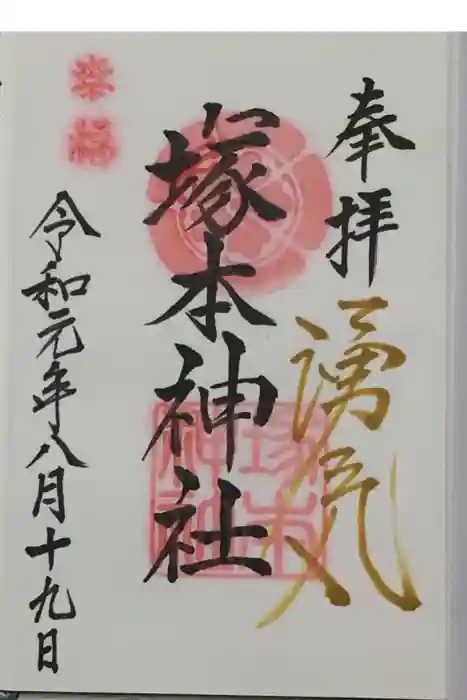 奉拝
湧気
塚本神社
幸福
令和元年八月十九日
塚本神社